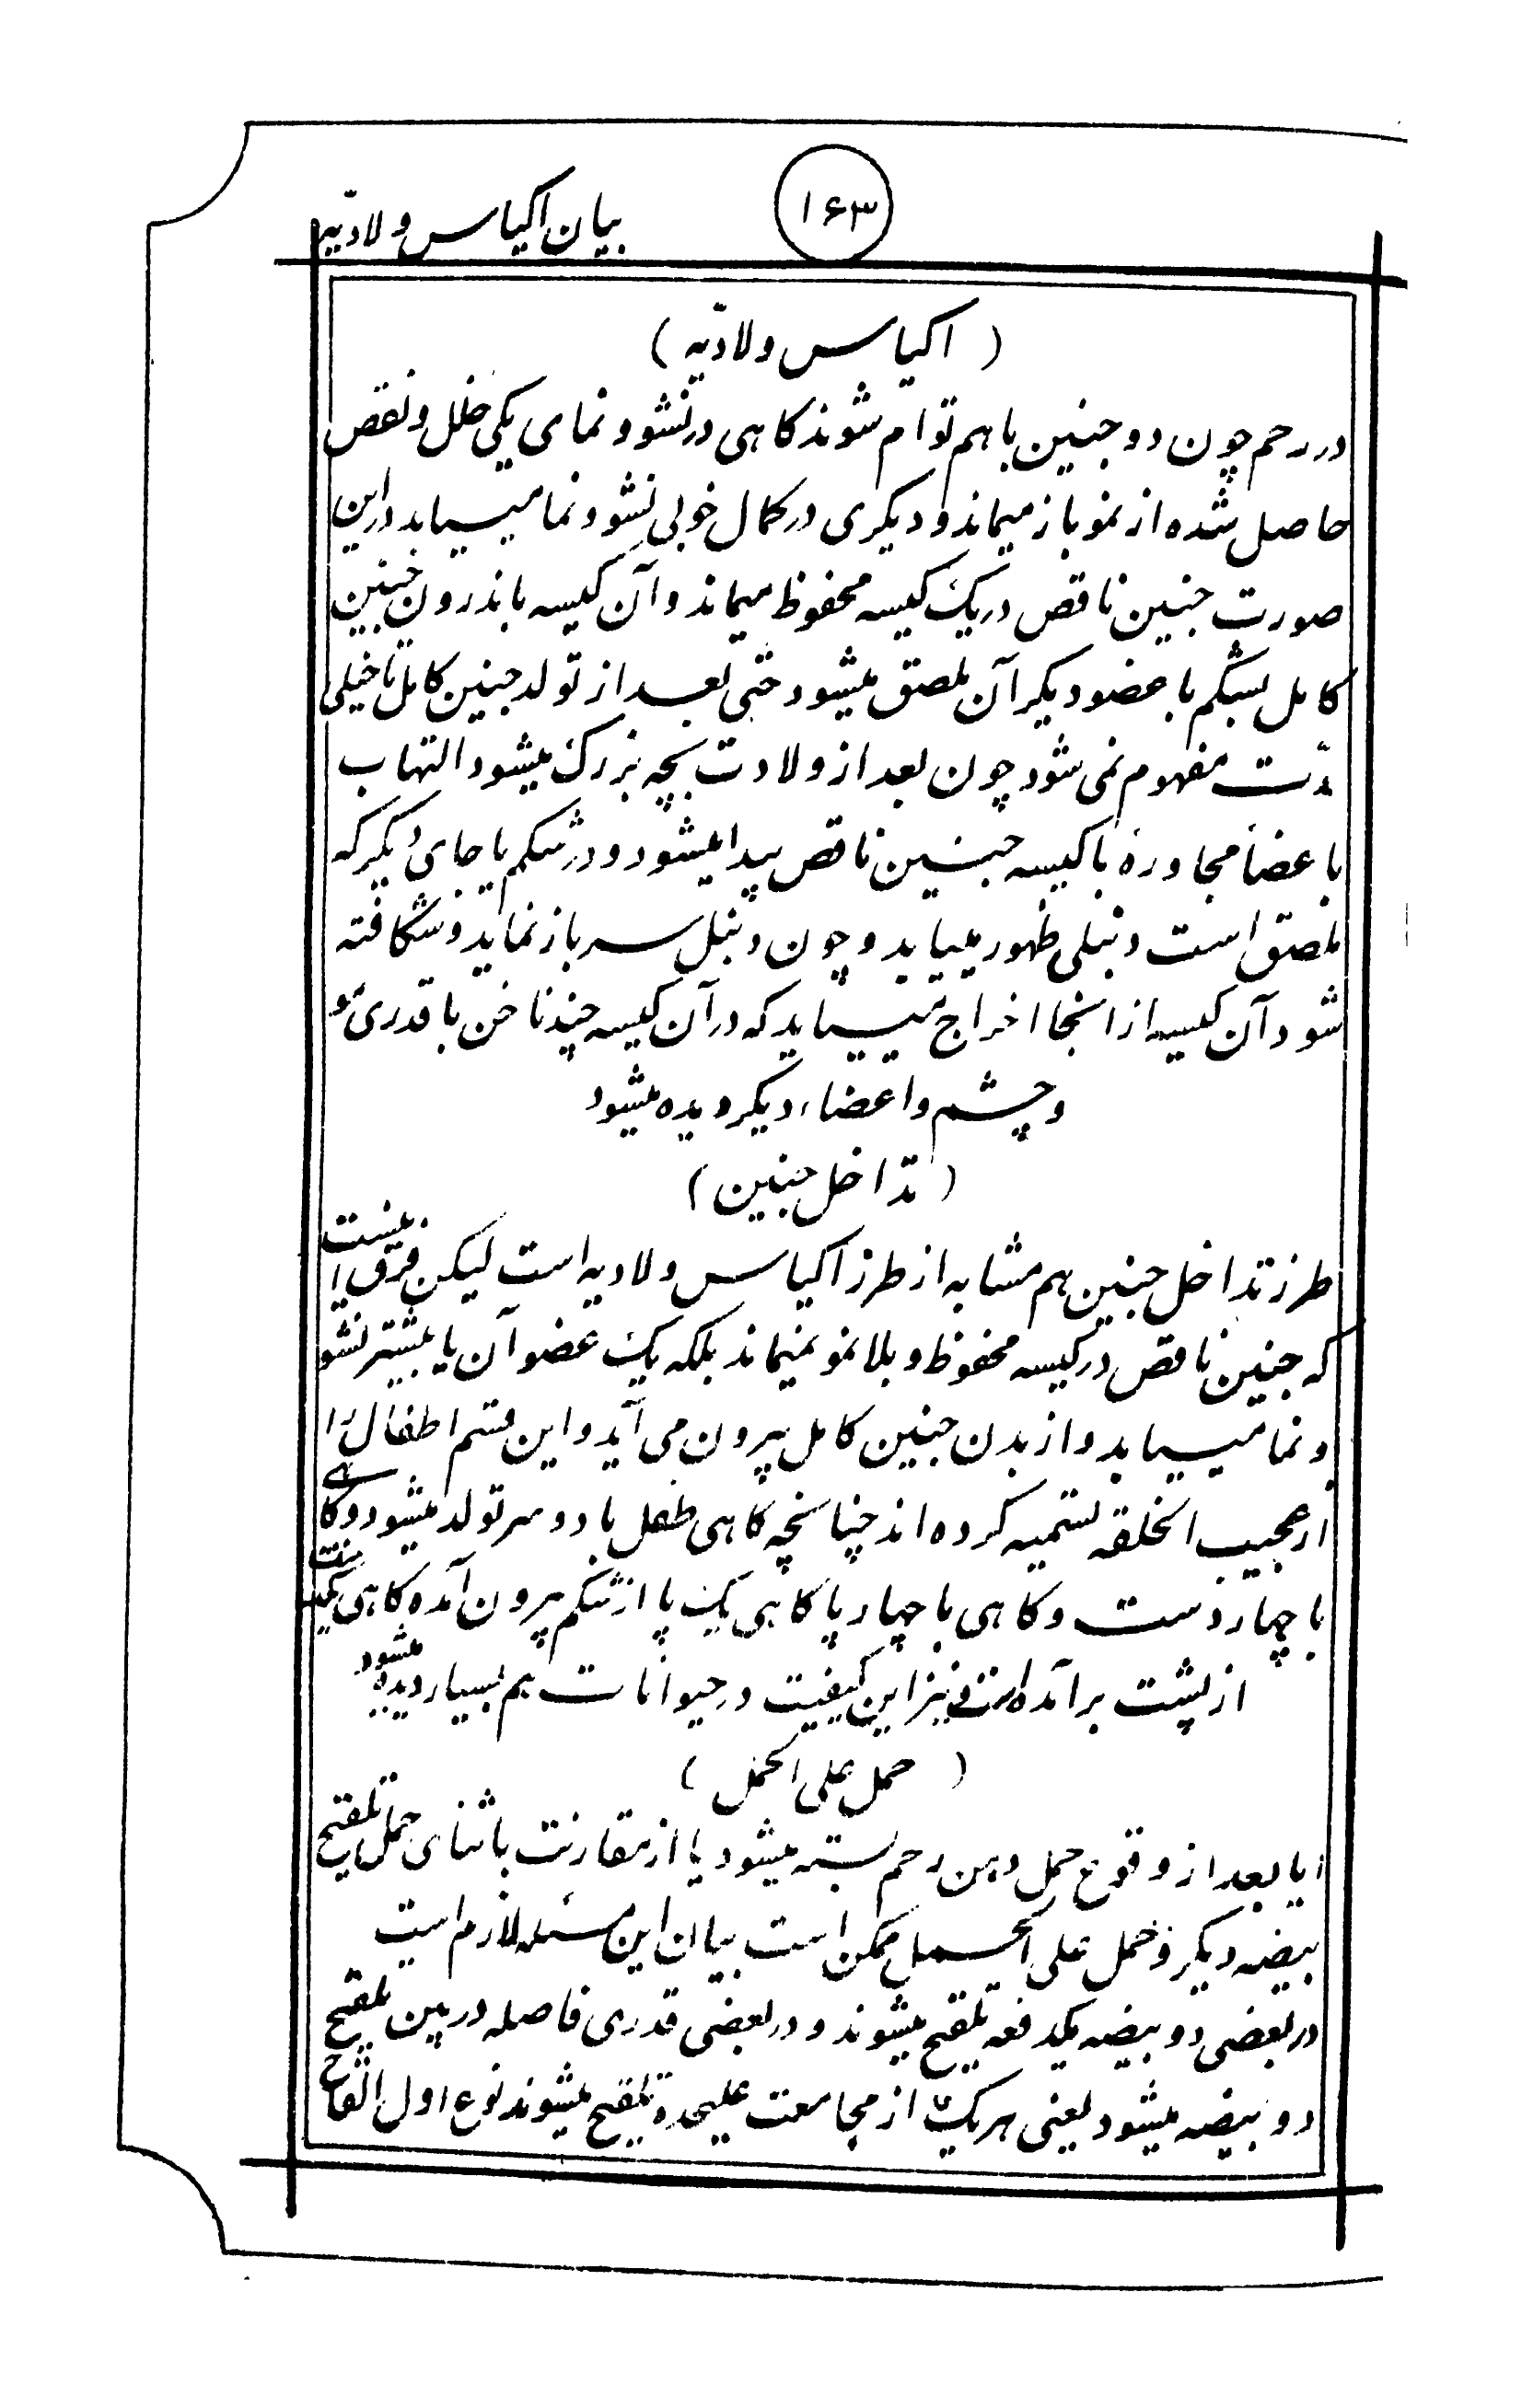 ۱۶۳
بیان اکیاس ولادیّه
( اکیاس ولادیّه )
در رحم چون دو جنین باهم توام شوند کاهی در نشو و نمای یکی خلل و نقص
حاصل شده از نمو باز میماند و دیکری در کمال خوبی نشو و نما مییابد دراین
صورت جنین ناقص در یک کیسه محفوظ میماند و آن کیسه باندرون جنین
کامل بشکم یا عضو دیکر آن ملصق میشود حتی بعد از تولد جنین کامل تا خیلی
مدّت مفهوم نمی شود چون بعد از ولادت بچه بزرک میشود التهاب
باعضا مجاوره با کیسه جنین ناقص پیدا میشود و در شکم یا جای دیکر که
ملصق است دنبلی ظهور مییابد و چون دنبل سر باز نماید و شکافته
شود آن کیسه از انجا اخراج مییابد که در آن کیسه چند ناخن یا قدری مو
و چشم و اعضاء دیکر دیده میشود
( تداخل جنین )
طرز تداخل جنین هم مشابه از طرز اکیاس ولادیه است لیکن فرق اینست
که جنین ناقص در کیسه محفوظ و بلا نمو نمیماند بلکه یک عضو آن یا بیشتر نشو
و نما مییابد و از بدن جنین کامل بیرون می آید و این قسم اطفال را
از عجیب الخلقه تسمیه کرده اند چنانچه کاهی طفل با دو سر تولد میشود و کاهی
با چهار دست و کاهی با چهار پا کاهی یک پا از شکم بیرون آمده کاهی یکدست
از پشت بر آمده است و نیز این کیفیت در حیوانات هم بسیار دیده میشود
( حمل علی الحمل )
ایا بعد از وقوع حمل دهن رحم بسته میشود یا از مقارنت باثنای حمل تلقیح
بیضه دیکر و حمل علی الحمل ممکن است بیان این مسئله لازم است
در بعضی دو بیضه یکدفعه تلقیح میشوند و در بعضی قدری فاصله در بین تلقیح
دو بیضه میشود یعنی هر یک از مجامعت علیحده تلقیح میشوند نوع اول القاح